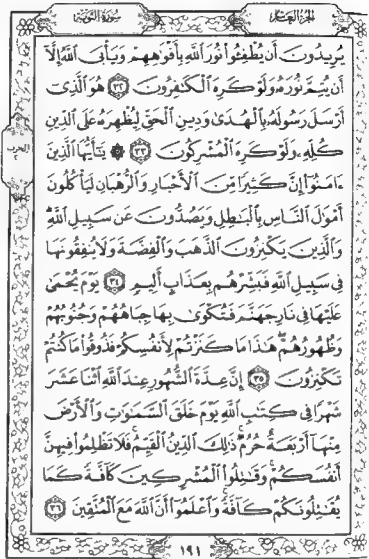 الجزء العاشر
سورة التوبة
يُرِيدُونَ أَن يُطْفِـُٔوا۟ نُورَ ٱللَّهِ بِأَفْوَٰهِهِمْ وَيَأْبَى ٱللَّهُ إِلَّآ
أَن يُتِمَّ نُورَهُۥ وَلَوْ كَرِهَ ٱلْكَٰفِرُونَ ٣٢ هُوَ ٱلَّذِىٓ
أَرْسَلَ رَسُولَهُۥ بِٱلْهُدَىٰ وَدِينِ ٱلْحَقِّ لِيُظْهِرَهُۥ عَلَى ٱلدِّينِ
كُلِّهِۦ وَلَوْ كَرِهَ ٱلْمُشْرِكُونَ ٣٣ ۞ يَٰٓأَيُّهَا ٱلَّذِينَ
ءَامَنُوٓا۟ إِنَّ كَثِيرًا مِّنَ ٱلْأَحْبَارِ وَٱلرُّهْبَانِ لَيَأْكُلُونَ
أَمْوَٰلَ ٱلنَّاسِ بِٱلْبَٰطِلِ وَيَصُدُّونَ عَن سَبِيلِ ٱللَّهِ ۗ
وَٱلَّذِينَ يَكْنِزُونَ ٱلذَّهَبَ وَٱلْفِضَّةَ وَلَا يُنفِقُونَهَا
فِى سَبِيلِ ٱللَّهِ فَبَشِّرْهُم بِعَذَابٍ أَلِيمٍ ٣٤ يَوْمَ يُحْمَىٰ
عَلَيْهَا فِى نَارِ جَهَنَّمَ فَتُكْوَىٰ بِهَا جِبَاهُهُمْ وَجُنُوبُهُمْ
وَظُهُورُهُمْ ۖ هَٰذَا مَا كَنَزْتُمْ لِأَنفُسِكُمْ فَذُوقُوا۟ مَا كُنتُمْ
تَكْنِزُونَ ٣٥ إِنَّ عِدَّةَ ٱلشُّهُورِ عِندَ ٱللَّهِ ٱثْنَا عَشَرَ
شَهْرًا فِى كِتَٰبِ ٱللَّهِ يَوْمَ خَلَقَ ٱلسَّمَٰوَٰتِ وَٱلْأَرْضَ
مِنْهَآ أَرْبَعَةٌ حُرُمٌ ۚ ذَٰلِكَ ٱلدِّينُ ٱلْقَيِّمُ ۚ فَلَا تَظْلِمُوا۟ فِيهِنَّ
أَنفُسَكُمْ ۚ وَقَٰتِلُوا۟ ٱلْمُشْرِكِينَ كَآفَّةً كَمَا
يُقَٰتِلُونَكُمْ كَآفَّةً ۚ وَٱعْلَمُوٓا۟ أَنَّ ٱللَّهَ مَعَ ٱلْمُتَّقِينَ ٣٦
١٩٢